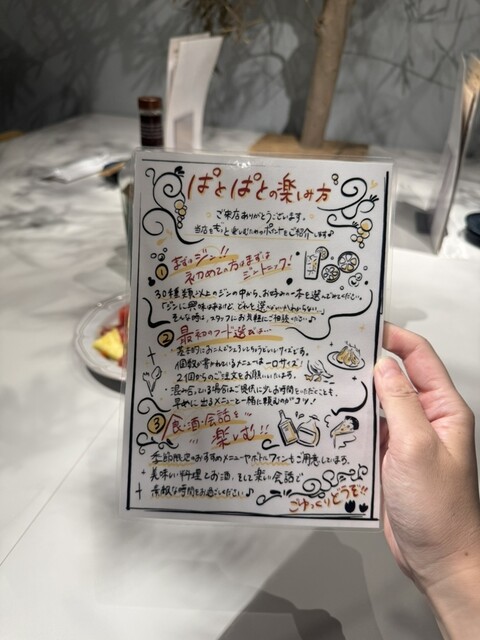 ぱとぱとの楽しみ方
ご来店ありがとうございます。
当店をもっと楽しむためのポイントをご紹介します♪
① まずはジン!!
初めての方はまずは
ジントニック!
30種類以上のジンの中から、お好みの一本を選んでみてください。
「ジンに興味はあるけど、どれを選べばいいかわからない…」
そんな時は、スタッフにお気軽にご相談ください♪
② 最初のフード選びは…
基本的にお二人でシェアしてちょうどいいサイズです。
個数が書かれているメニューは一口サイズ!
2個からのご注文をお願いいたします。
・混み合っている場合はご提供に少しお時間をいただくことも。
早めに出るメニューと一緒に頼むのがコツ!
③ 食・酒・会話を
楽しむ!!
季節限定のおすすめメニューやボトルワインもご用意しています。
美味しい料理とお酒、そして楽しい会話で
素敵な時間をお過ごしください♪
ごゆっくりどうぞ!!